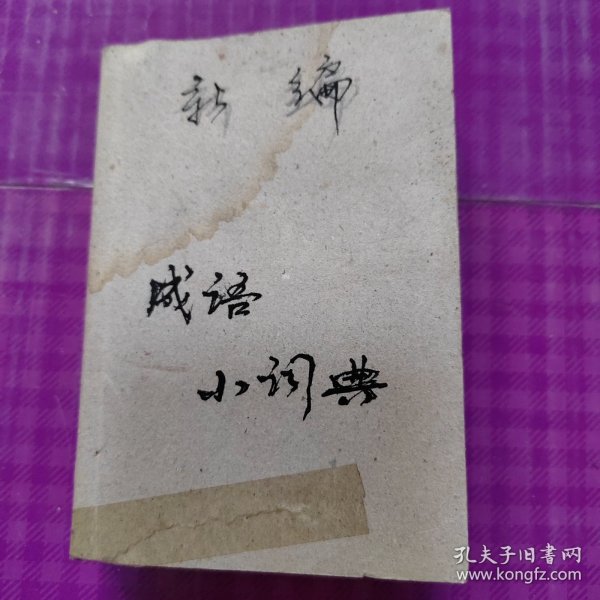 新编
成语
小词典
孔夫子旧书网
www.kongfz.com